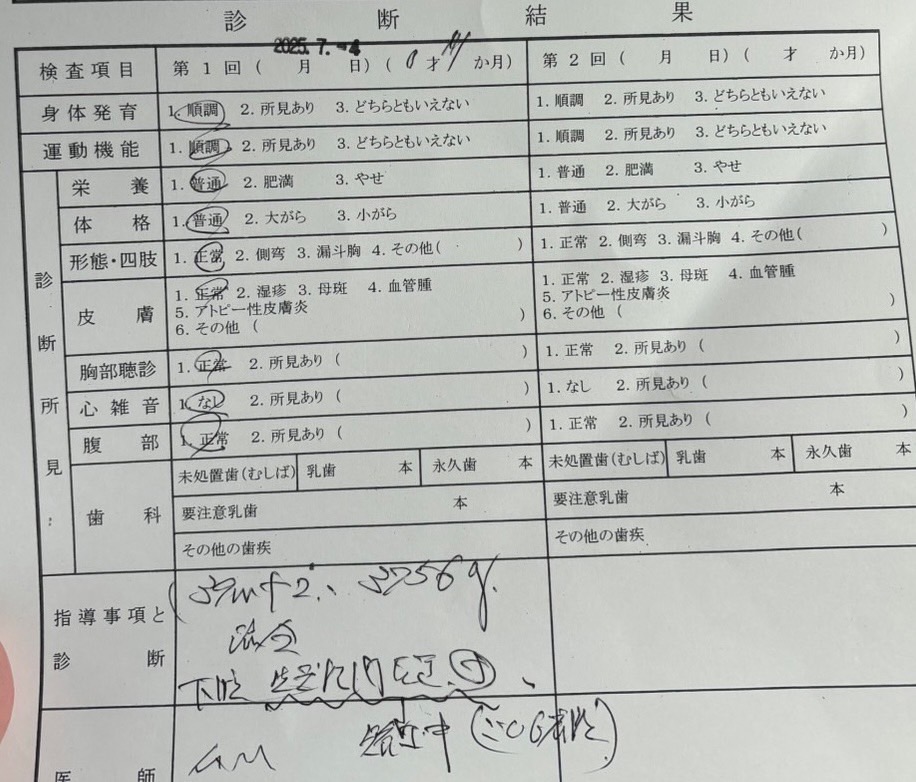 診 断 結 果
2025. 7. -4
検査項目 第1回( 月 日)( 0 才 か月) 第2回( 月 日)( 才 か月)
身体発育 1. 順調 2. 所見あり 3. どちらともいえない 1. 順調 2. 所見あり 3. どちらともいえない
運動機能 1. 順調 2. 所見あり 3. どちらともいえない 1. 順調 2. 所見あり 3. どちらともいえない
診断所見
栄 養 1. 普通 2. 肥満 3. やせ 1. 普通 2. 肥満 3. やせ
体 格 1. 普通 2. 大がら 3. 小がら 1. 普通 2. 大がら 3. 小がら
形態・四肢 1. 正常 2. 側弯 3. 漏斗胸 4. その他( ) 1. 正常 2. 側弯 3. 漏斗胸 4. その他( )
皮 膚 1. 正常 2. 湿疹 3. 母斑 4. 血管腫 1. 正常 2. 湿疹 3. 母斑 4. 血管腫
5. アトピー性皮膚炎 5. アトピー性皮膚炎
6. その他( ) 6. その他( )
胸部聴診 1. 正常 2. 所見あり( ) 1. 正常 2. 所見あり( )
心雑音 1. なし 2. 所見あり( ) 1. なし 2. 所見あり( )
腹 部 1. 正常 2. 所見あり( ) 1. 正常 2. 所見あり( )
歯 科 未処置歯(むしば) 乳歯 本 永久歯 本 未処置歯(むしば) 乳歯 本 永久歯 本
要注意乳歯 本 要注意乳歯 本
その他の歯疾 その他の歯疾
指導事項と診断
医 師